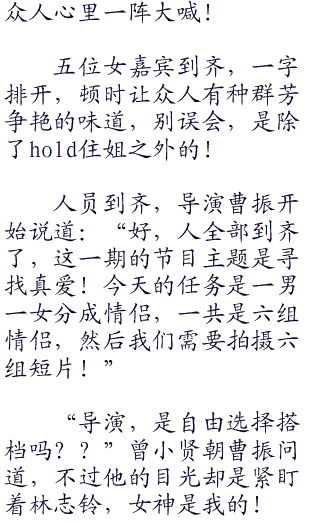 众人心里一阵大喊！
五位女嘉宾到齐，一字
排开，顿时让众人有种群芳
争艳的味道，别误会，是除
了hold住姐之外的！
人员到齐，导演曹振开
始说道：“好，人全部到齐
了，这一期的节目主题是寻
找真爱！今天的任务是一男
一女分成情侣，一共是六组
情侣，然后我们需要拍摄六
组短片！”
“导演，是自由选择搭
档吗？？”曾小贤朝曹振问
道，不过他的目光却是紧盯
着林志铃，女神是我的！